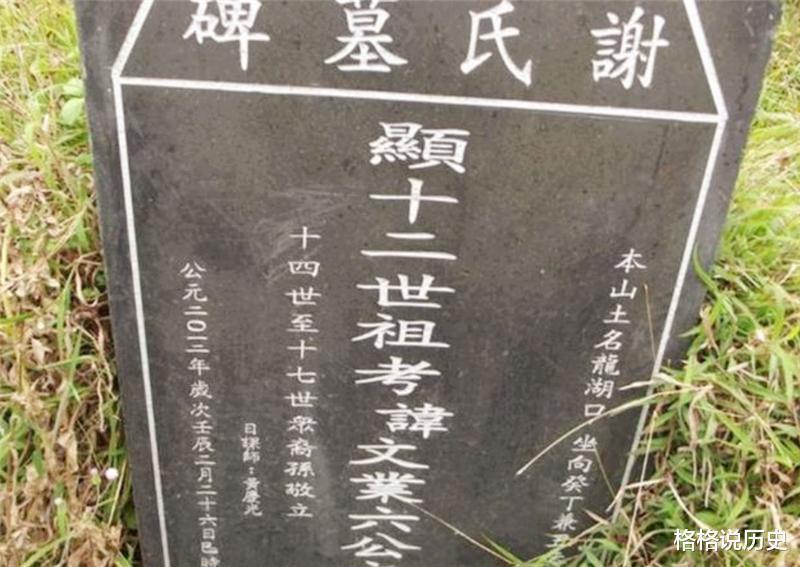 謝氏墓碑
本山土名龍湖口坐向癸丁兼丑
顯十二世祖考諱文業六公
十四世至十七世眾裔孫敬立
日課師：黃慶光
公元二〇一二年歲次壬辰二月二十六日巳時
格格说历史